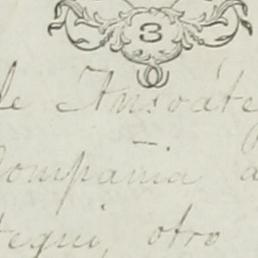 3
de Ansoáte
Compañia a
tegui, otro